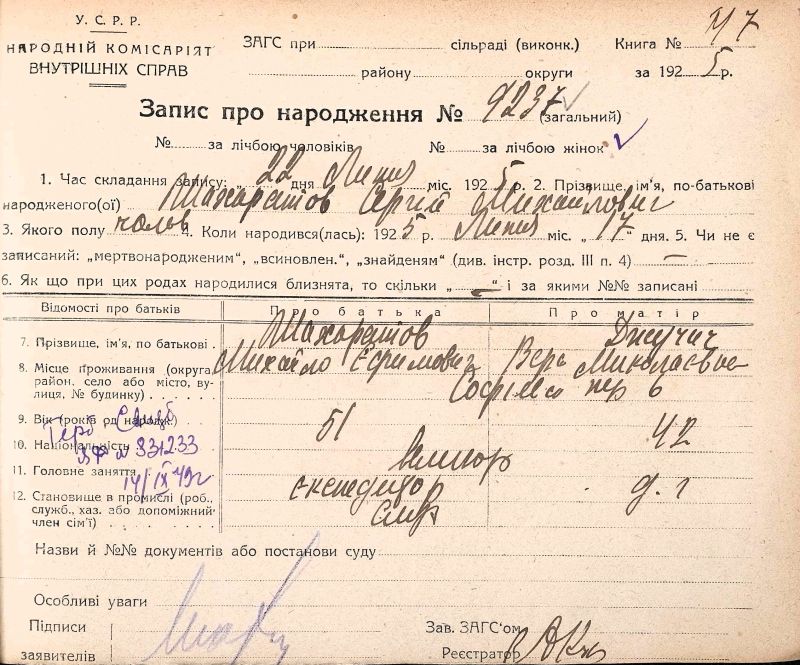 У. С. Р. Р.
НАРОДНІЙ КОМІСАРІЯТ
ВНУТРІШНІХ СПРАВ
ЗАГС при сільраді (виконк.) Книга №
району округи за 1925 р.
Запис про народження № 9237 (загальний)
№ за лічбою чоловіків № за лічбою жінок
1. Час складання запису: „22 дня Липня міс. 1925 р. 2. Прізвище, ім'я, по-батькові
народженого(ої) Сергій Михайлович
3. Якого полу чолов 4. Коли народився(лась): 1925 р. Липня міс. „17 дня. 5. Чи не є
записаний: „мертвонародженим", „всиновлен.", „знайденям" (див. інстр. розд. III п. 4) —
6. Як що при цих родах народилися близнята, то скільки „—" і за якими №№ записані
Відомості про батьків Про батька Про матір
7. Прізвище, ім'я, по батькові Михайло Єфимович Вера Миколаєвна
8. Місце проживання (округа район. село або місто, вулиця, № будинку) пер 6
9. Вік (років од народж.) 51 42
10. Національність
11. Головне заняття експедитор д. г
12. Становище в промислі (роб., служб., хаз. або допоміжний член сім'ї)
№ 331233
14/IX 49г
Назви й №№ документів або постанови суду
Особливі уваги
Підписи
заявителів
Зав. ЗАГС'ом
Реєстратор